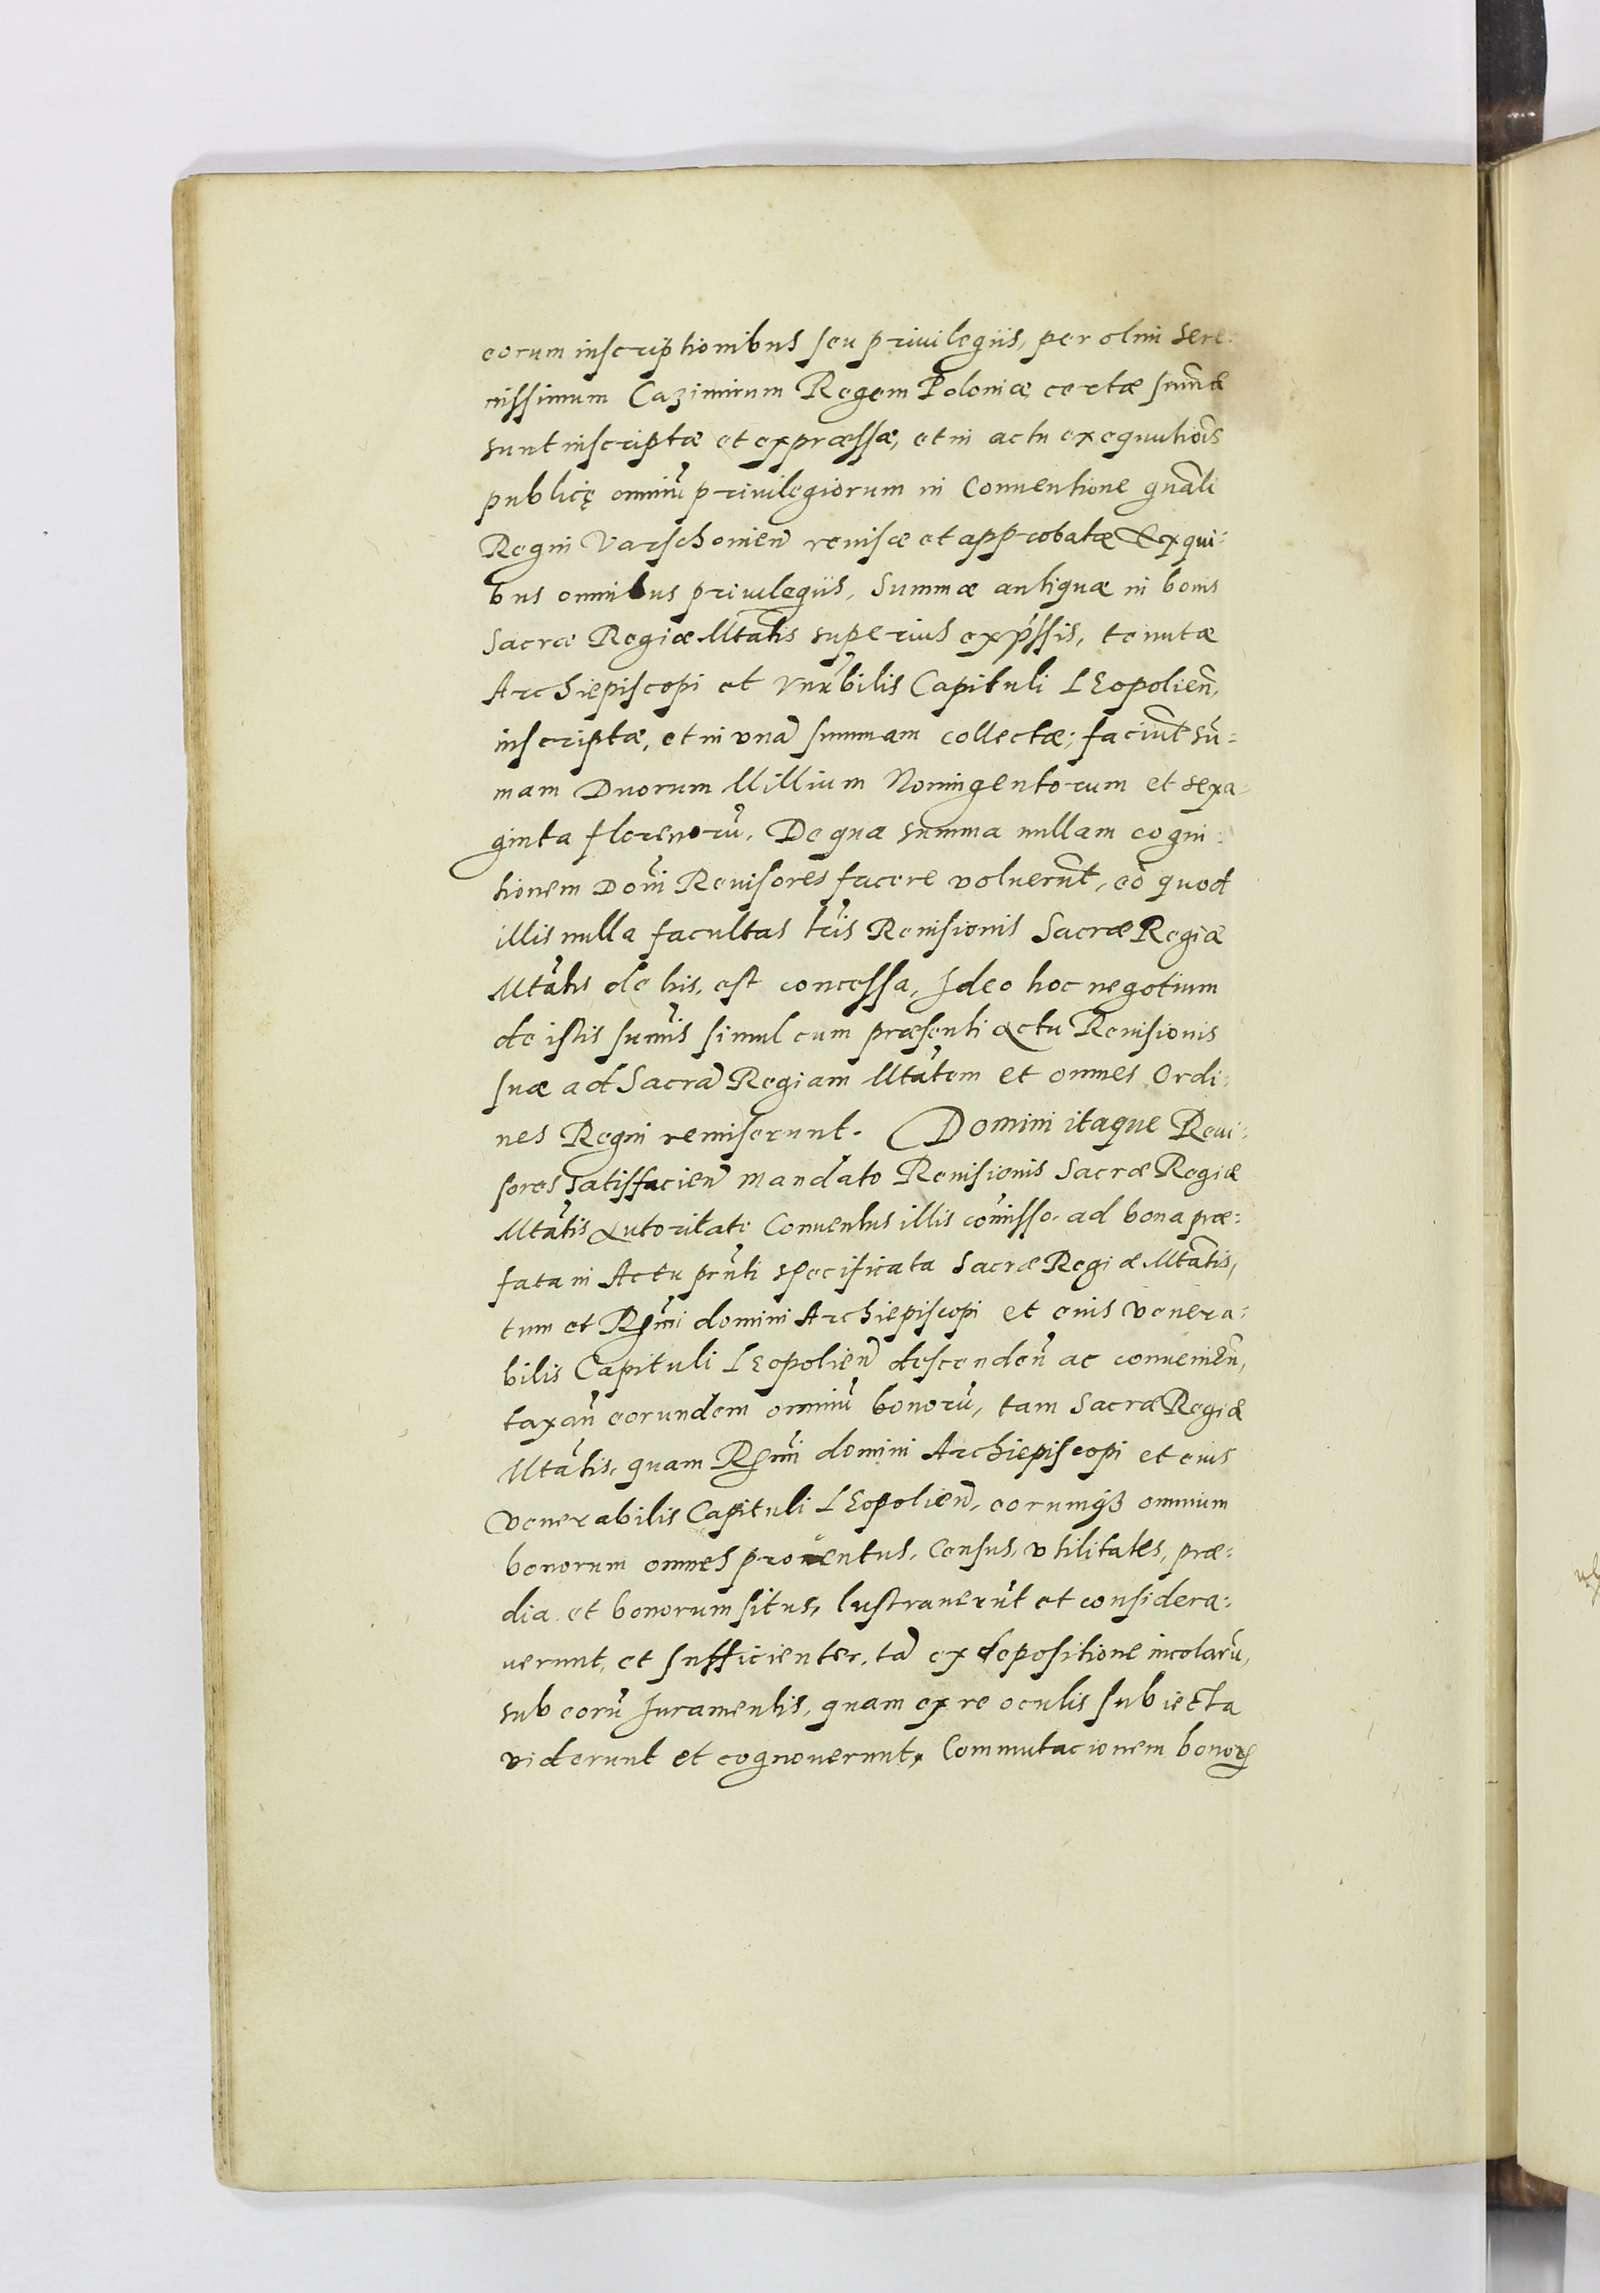 eorum inscriptionibus seu priuilegiis, per olim sere:
nissimum Cazimirum Regem Poloniæ certæ summæ
sunt inscriptæ et expræssæ, et in actu exequutiois
publicę omniū priuilegiorum in Conuentione gnāli
Regni Varschouien̄ reuisæ et approbatæ Ex qui:
bus omnibus priuilegiis, Summæ antiquæ in bonis
Sacræ Regiæ Mtatis superius exp̄ssis, tenutæ
Archiepiscopi et Vnrabilis Capituli LEopolien̄,
inscriptæ, et in vnā summam collectæ; faciunt sū:
mam Duorum Millium Noningentorum et sexa:
ginta florenorū. De qua summa nullam cogni:
tionem Domi Reuisores facere voluerūt, eò quod
illis nulla facultas lrīs Reuisionis Sacræ Regiæ
Mtatis de his, est concessa, Ideo hoc negotium
de istis sumīs simul cum præsenti Actu Reuisionis
suæ ad Sacrā Regiam Mtatem et omnes Ordi:
nes Regni remiserunt. Domini itaque Reui:
sores satisfacien̄ mandato Reuisionis Sacræ Regiæ
Mtatis Autoritate Conuentus illis comīsso. ad bona præ:
fata in Actu prn̄ti specificata Sacræ Regiæ Mtatis,
tum et Rsmi domini Archiepiscopi et eius venera:
bilis Capituli LEopolien̄ descenden̄ ac conuenien̄,
taxan̄ eorundem omniū bonorū, tam Sacræ Regiæ
Mtatis, quam Rsmi domini Archiepiscopi et eius
venerabilis Capituli LEopolien̄, eorumqꝫ omnium
bonorum omnes prouentus, Census, vtilitates, præ:
dia et bonorum situs, lustrauerūt et considera:
uerunt, et sufficienter, tā ex depositione incolarū,
sub eorū Iuramentis, quam ex re oculis subiecta
viderunt et cognouerunt, Commutacionem bonoꝝ